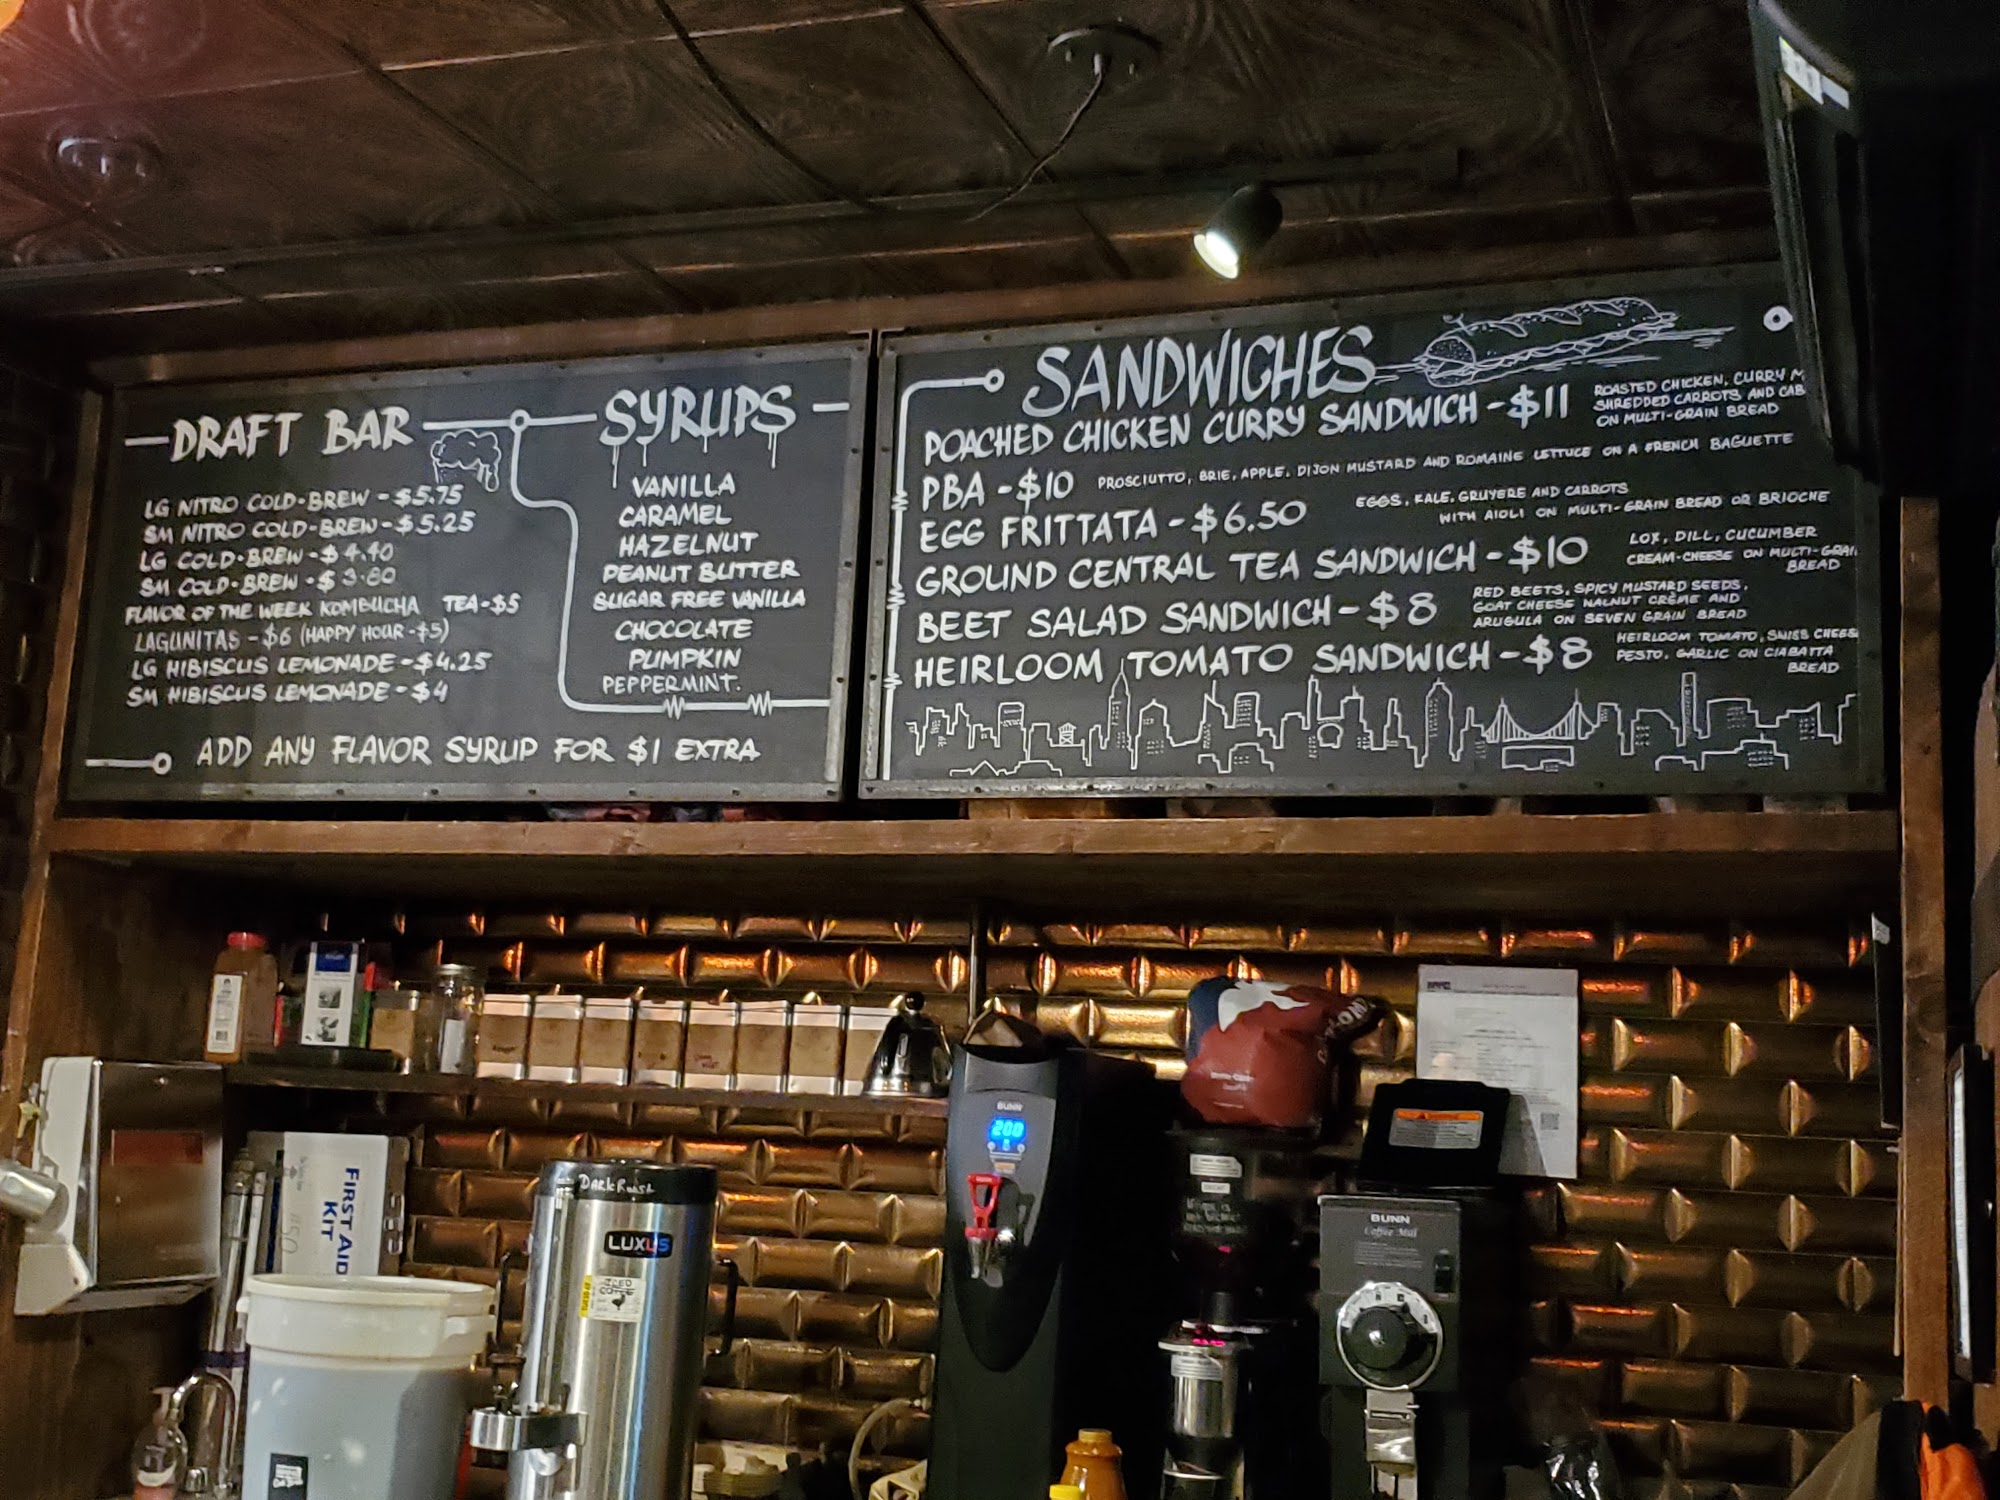 DRAFT BAR
LG NITRO COLD-BREW - $5.75
SM NITRO COLD-BREW - $5.25
LG COLD-BREW - $4.40
SM COLD-BREW - $3.80
FLAVOR OF THE WEEK KOMBUCHA TEA - $5
LAGUNITAS - $6 (HAPPY HOUR - $5)
LG HIBISCUS LEMONADE - $4.25
SM HIBISCUS LEMONADE - $4
SYRUPS
VANILLA
CARAMEL
HAZELNUT
PEANUT BUTTER
SUGAR FREE VANILLA
CHOCOLATE
PUMPKIN
PEPPERMINT.
ADD ANY FLAVOR SYRUP FOR $1 EXTRA
SANDWICHES
POACHED CHICKEN CURRY SANDWICH - $11
ROASTED CHICKEN, CURRY M
SHREDDED CARROTS AND CAB
ON MULTI-GRAIN BREAD
PBA - $10 PROSCIUTTO, BRIE, APPLE, DIJON MUSTARD AND ROMAINE LETTUCE ON A FRENCH BAGUETTE
EGG FRITTATA - $6.50
EGGS, KALE, GRUYERE AND CARROTS
WITH AIOLI ON MULTI-GRAIN BREAD OR BRIOCHE
GROUND CENTRAL TEA SANDWICH - $10
LOX, DILL, CUCUMBER
CREAM-CHEESE ON MULTI-GRAI
BREAD
BEET SALAD SANDWICH - $8
RED BEETS, SPICY MUSTARD SEEDS,
GOAT CHEESE WALNUT CRÈME AND
ARUGULA ON SEVEN GRAIN BREAD
HEIRLOOM TOMATO SANDWICH - $8
HEIRLOOM TOMATO, SWISS CHEES
PESTO, GARLIC ON CIABATTA
BREAD
FIRST AID
KIT
DARK ROAST
LUXUS
ICED
COFFEE
BUNN
200
BUNN
Coffee Mill